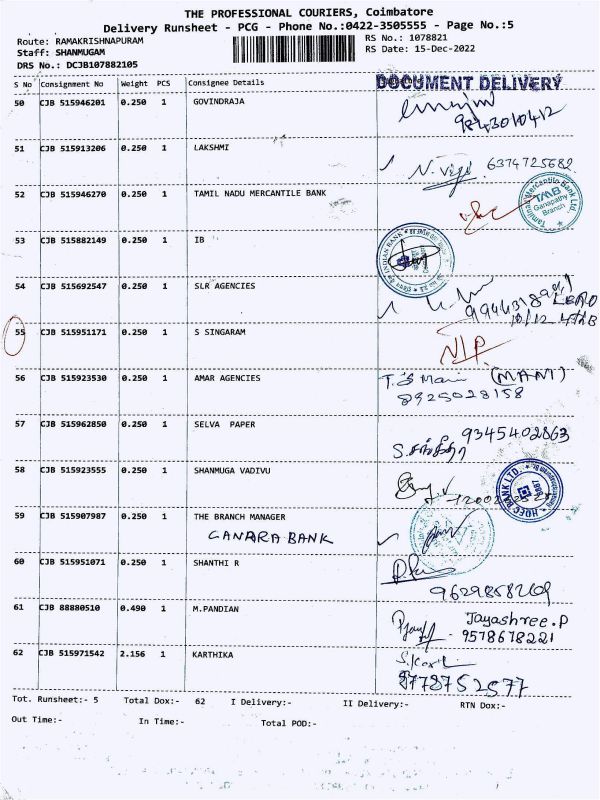 THE PROFESSIONAL COURIERS, Coimbatore
Delivery Runsheet - PCG - Phone No.:0422-3505555 - Page No.:5
Route: RAMAKRISHNAPURAM RS No.: 1078821
Staff: SHANMUGAM RS Date: 15-Dec-2022
DRS No.: DCJB107882105
DOCUMENT DELIVERY
S No Consignment No Weight PCS Consignee Details
50 CJB 515946201 0.250 1 GOVINDRAJA
9843010412
51 CJB 515913206 0.250 1 LAKSHMI
6374725682
52 CJB 515946270 0.250 1 TAMIL NADU MERCANTILE BANK
Tamilnad Mercantile Bank Ltd. TMB Ganapathy Branch
53 CJB 515882149 0.250 1 IB
INDIAN BANK
54 CJB 515692547 0.250 1 SLR AGENCIES
55 CJB 515951171 0.250 1 S SINGARAM
56 CJB 515923530 0.250 1 AMAR AGENCIES
T.S Mani (MANI)
8925028158
57 CJB 515962850 0.250 1 SELVA PAPER
9345402863
58 CJB 515923555 0.250 1 SHANMUGA VADIVU
HDFC BANK LTD.
59 CJB 515907987 0.250 1 THE BRANCH MANAGER
CANARA BANK
60 CJB 515951071 0.250 1 SHANTHI R
9629858269
61 CJB 88880510 0.490 1 M.PANDIAN
Jayashree.P
9578678221
62 CJB 515971542 2.156 1 KARTHIKA
9778752577
Tot. Runsheet:- 5 Total Dox:- 62 I Delivery:- II Delivery:- RTN Dox:-
Out Time:- In Time:- Total POD:-